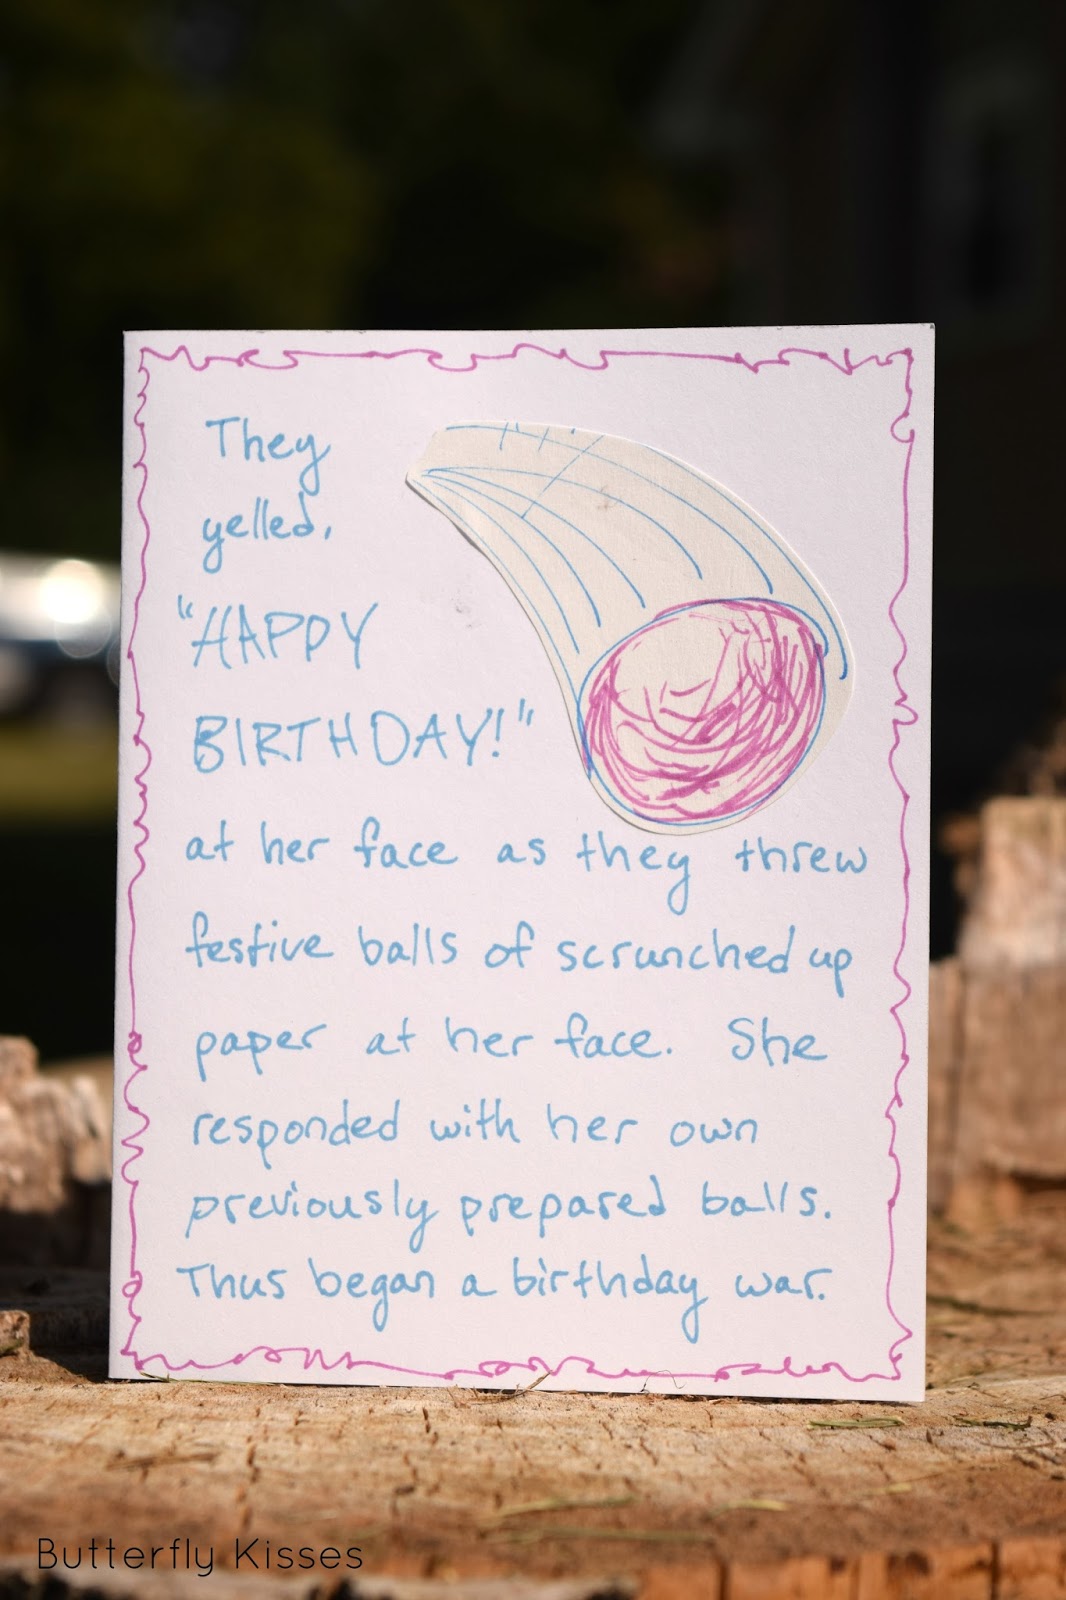 They
yelled,
"HAPPY
BIRTHDAY!"
at her face as they threw
festive balls of scrunched up
paper at her face. She
responded with her own
previously prepared balls.
Thus began a birthday war.
Butterfly Kisses